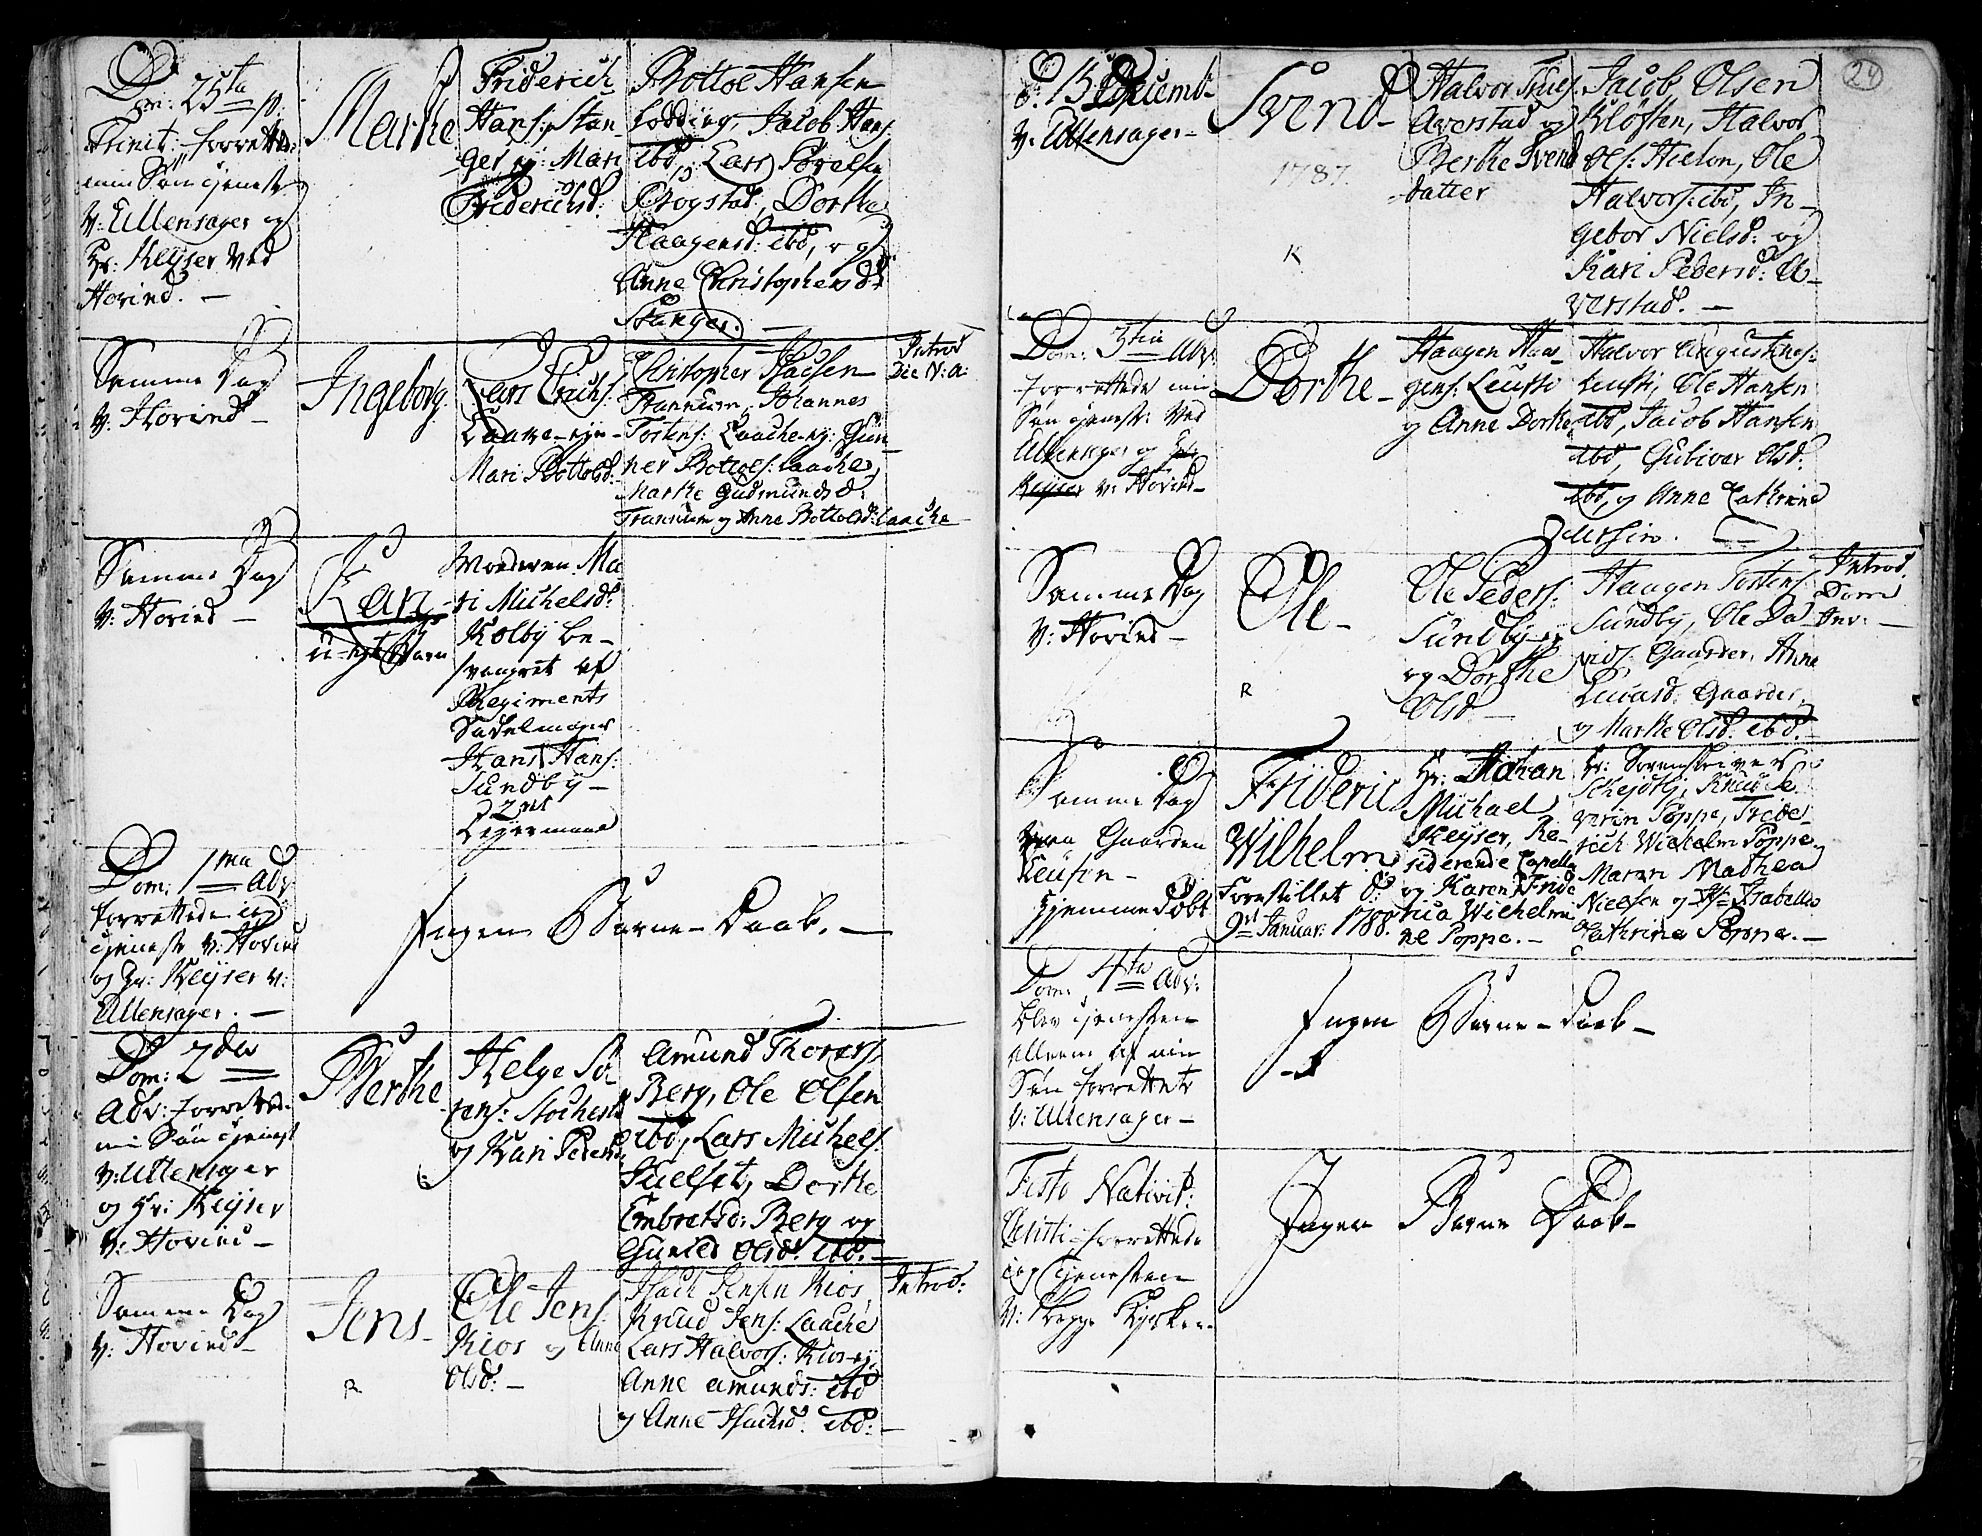 Dom: 25ta p:
Trinit: forrettede
min Søn Tjeneste
v: Ullensager og
Hr: Keyser ved
Hovind. —
Marthe
Friderich
Hans: Stan-
ger og Mari
Friderichsd:
Bottol Hansen
Lodding, Jacob Hans:
ibd, Lars Povelsen
Krogstad, Dorthe
Haagensd: ibd, og
Anne Christophersd:
Stanger. —
Samme Dag
v: Hovind —
Ingeborg.
Lars Erichs:
Laache eje-
Mari Bottolsd:
Christopher
Trannum, Johannes
Tostens: Laache ej: Gun-
ner Bottols: Laache,
Marthe Gudmundsd:
Trannum og Anne Bottolsd: Laache
Introd
Die N: A:
Samme Dag
v: Hovind —
Kari
u-egte Barn
Moderen Ma-
ri Michelsd:
Kolby be-
svangret af
Regiments
Sadelmager
Hans Hans:
Sundby —
2det
Lejermaal
Dom: 1ma Adv:
forrettede jeg
Tjeneste v: Hovind
og Hr: Keyser v:
Ullensager. —
Ingen Barne-Daab. —
Dom: 2da
Adv: forrettede
min Søn Tjenest
v: Ullensager
og Hr: Keyser
v: Hovind —
Berthe
Helge Sø-
rens:
og Kari Pedersd:
Amund Thorers:
Berg, Ole Olsen
ibd, Lars Michels:
Dorthe
Embretsd: Berg og
Gunild Olsd: ibd: —
Samme Dag
v: Hovind —
Jens —
R
Ole Jens:
Kios og Anne
Olsd: —
Isach Jensen Kios,
Knud Jens: Laache
Lars Halvors: Kios ej,
Anne Amunds: ibd
og Anne Isachsd: ibd: —
Introd:
24
d: 15 Decemb:
v: Ullensager —
Svend —
1787.
K
Halvor Thues:
Averstad og
Berthe Svends-
datter
Jacob Olsen
Kløften, Halvor
Ols: Hielon, Ole
Halvors: ibd, In-
gebor Nielsd: og
Kari Pedersd: A-
verstad. —
Dom: 3tia Adv:
forrettede min
Søn Tjenest: ved
Ullensager og Hr:
Keyser v: Hovind —
Dorthe —
Haagen Haa-
gens: Leutti
og Anne Dorthe
Halvor Augustines:
Leutti, Ole Hansen
ibd, Jacob Hansen
ibd, Gulivar Olsd:
ibd, og Anne Cathrine
Samme Dag
v: Hovind —
Ole —
R
Ole Peders:
Sundby
og Dorthe
Olsd —
Haagen Tostens:
Sundby, Ole Da-
vids: Gaarder, Anne
Gaarder,
og Marthe Olsd: ibd: —
Introd.
Dom
Inv: —
Samme Dag
paa Gaarden
Hjemmedøbt
Frideric
Wilhelm
Forestillet d:
9de Januar: 1788.
Hr: Johan
Michael
Keyser, Re-
siderende Capellan
og Karen Fride-
rica Wilhelmi-
ne Poppe. —
Hr: Sorenskriver
Knud Se-
verin Poppe, Fride-
rich Wilhelm Poppe,
Maren Mathea
Nielsen og Isabella
Cathrina Poppe. —
Dom: 4ta Adv:
blev Tjenesten
alleene af min
Søn forrettet
v: Ullensager —
Ingen Barne-Daab —
Festo Nativit:
Christi forrettede
jeg Tjenesten
v: begge Kirker.
Ingen Barne Daab —